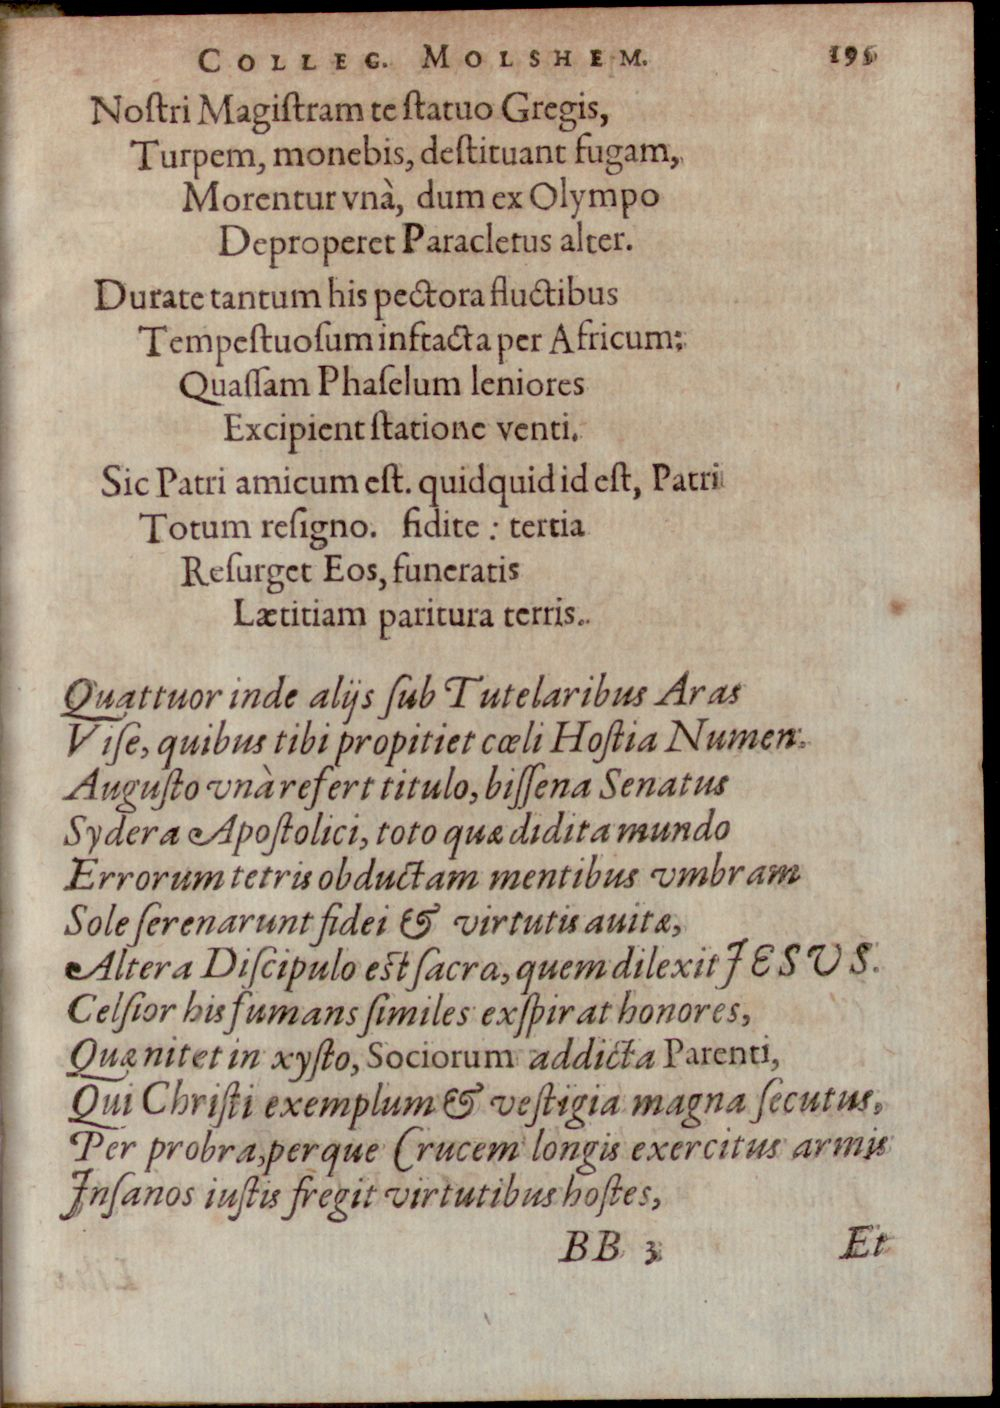 COLLEG. MOLSHEM. 195
Noſtri Magiſtram te ſtatuo Gregis,
Turpem, monebis, deſtituant fugam,
Morentur vnà, dum ex Olympo
Deproperet Paracletus alter.
Durate tantum his pectora fluctibus
Tempeſtuoſum infracta per Africum:
Quaſſam Phaſelum leniores
Excipient ſtatione venti.
Sic Patri amicum eſt. quidquid id eſt, Patri
Totum reſigno. fidite : tertia
Reſurget Eos, funeratis
Lætitiam paritura terris.
Quattuor inde alijs ſub Tutelaribus Aras
Viſe, quibus tibi propitiet cœli Hoſtia Numen.
Auguſto vnà refert titulo, biſſena Senatus
Sydera Apoſtolici, toto quæ didita mundo
Errorum tetris obductam mentibus vmbram
Sole ſerenarunt fidei & virtutis auitæ,
Altera Diſcipulo eſt ſacra, quem dilexit JESVS.
Celſior his fumans ſimiles exſpirat honores,
Quæ nitet in xyſto, Sociorum addicta Parenti,
Qui Chriſti exemplum & veſtigia magna ſecutus,
Per probra, perque Crucem longis exercitus armis
Jnſanos iuſtis fregit virtutibus hoſtes,
BB 3 Et